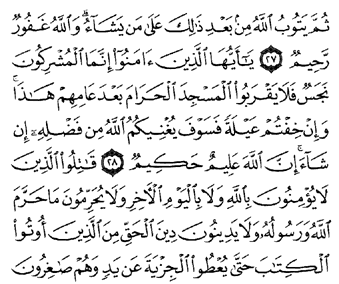 ثُمَّ يَتُوبُ ٱللَّهُ مِنۢ بَعْدِ ذَٰلِكَ عَلَىٰ مَن يَشَآءُ ۗ وَٱللَّهُ غَفُورٌ
رَّحِيمٌ ٢٧ يَـٰٓأَيُّهَا ٱلَّذِينَ ءَامَنُوٓا۟ إِنَّمَا ٱلْمُشْرِكُونَ
نَجَسٌ فَلَا يَقْرَبُوا۟ ٱلْمَسْجِدَ ٱلْحَرَامَ بَعْدَ عَامِهِمْ هَـٰذَا ۚ
وَإِنْ خِفْتُمْ عَيْلَةً فَسَوْفَ يُغْنِيكُمُ ٱللَّهُ مِن فَضْلِهِۦٓ إِن
شَآءَ ۚ إِنَّ ٱللَّهَ عَلِيمٌ حَكِيمٌ ٢٨ قَـٰتِلُوا۟ ٱلَّذِينَ
لَا يُؤْمِنُونَ بِٱللَّهِ وَلَا بِٱلْيَوْمِ ٱلْـَٔاخِرِ وَلَا يُحَرِّمُونَ مَا حَرَّمَ
ٱللَّهُ وَرَسُولُهُۥ وَلَا يَدِينُونَ دِينَ ٱلْحَقِّ مِنَ ٱلَّذِينَ أُوتُوا۟
ٱلْكِتَـٰبَ حَتَّىٰ يُعْطُوا۟ ٱلْجِزْيَةَ عَن يَدٍ وَهُمْ صَـٰغِرُونَ